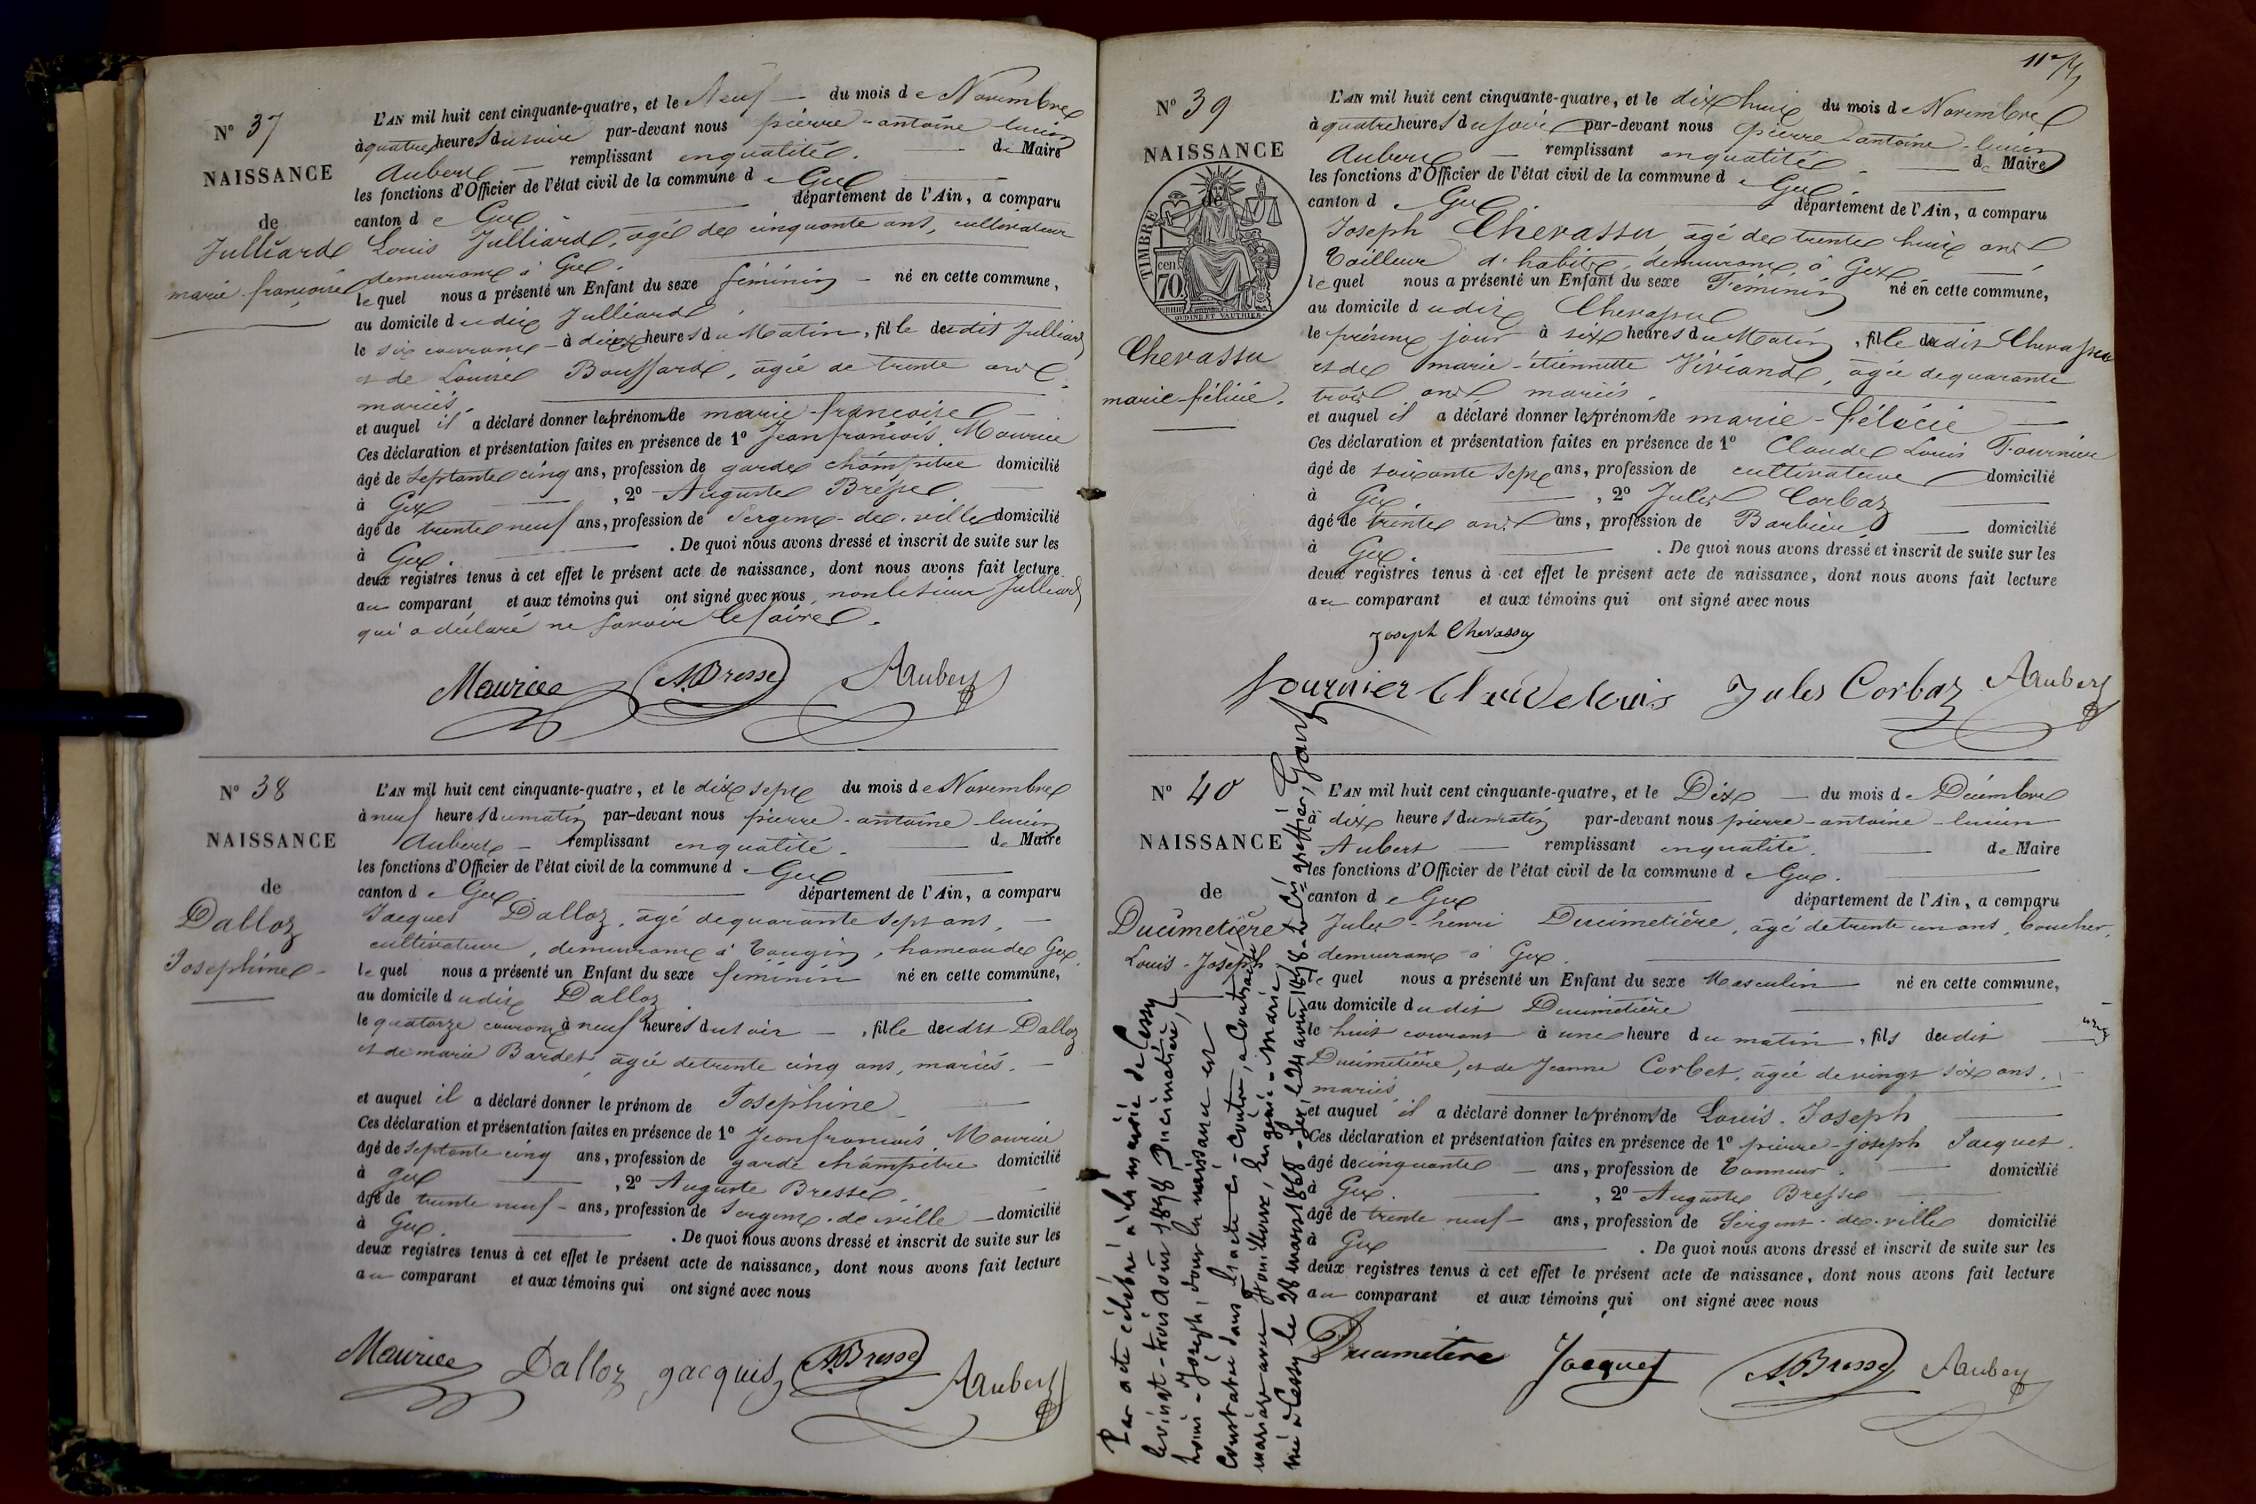 N° 37
NAISSANCE
de
Julliard
marie-françoise
L'AN mil huit cent cinquante-quatre, et le Neuf du mois de Novembre
à quatre heures du soir par-devant nous pierre-antoine-lucien
Aubert remplissant en qualité de Maire
les fonctions d'Officier de l'état civil de la commune de Gex
canton de Gex département de l'Ain, a comparu
Louis Julliard, âgé de cinquante ans, cultivateur
demeurant à Gex.
lequel nous a présenté un Enfant du sexe féminin né en cette commune,
au domicile dudit Julliard
le six courant à deux heures du Matin, fille dudit Julliard
et de Louise Boussard, âgée de trente ans,
mariés.
et auquel il a déclaré donner les prénoms de marie-françoise
Ces déclaration et présentation faites en présence de 1° Jean françois Maurice
âgé de septante cinq ans, profession de garde champêtre domicilié
à Gex, 2° Auguste Bresse
âgé de trente neuf ans, profession de Sergent-de-ville domicilié
à Gex. De quoi nous avons dressé et inscrit de suite sur les
deux registres tenus à cet effet le présent acte de naissance, dont nous avons fait lecture
au comparant et aux témoins qui ont signé avec nous, non le sieur Julliard
qui a déclaré ne savoir le faire.
Maurice A. Bresse Aubert
N° 38
NAISSANCE
de
Dalloz
Josephine
L'AN mil huit cent cinquante-quatre, et le dix sept du mois de Novembre
à neuf heures du matin par-devant nous pierre-antoine-lucien
Aubert remplissant en qualité de Maire
les fonctions d'Officier de l'état civil de la commune de Gex
canton de Gex département de l'Ain, a comparu
Jacques Dalloz, âgé de quarante sept ans,
cultivateur, demeurant à Tougin, hameau de Gex.
lequel nous a présenté un Enfant du sexe féminin né en cette commune,
au domicile dudit Dalloz
le quatorze courant à neuf heures du soir, fille dudit Dalloz
et de marie Bardet, âgée de trente cinq ans, mariés.
et auquel il a déclaré donner le prénom de Josephine
Ces déclaration et présentation faites en présence de 1° Jean françois Maurice
âgé de septante cinq ans, profession de garde champêtre domicilié
à gex, 2° Auguste Bresse.
âgé de trente neuf ans, profession de Sergent-de-ville domicilié
à Gex. De quoi nous avons dressé et inscrit de suite sur les
deux registres tenus à cet effet le présent acte de naissance, dont nous avons fait lecture
au comparant et aux témoins qui ont signé avec nous
Maurice Dalloz jacques A. Bresse Aubert
N° 39
NAISSANCE
de
TIMBRE
70
Chevassu
marie-félicie.
L'AN mil huit cent cinquante-quatre, et le dix huit du mois de Novembre
à quatre heures du soir par-devant nous pierre-antoine-lucien
Aubert remplissant en qualité de Maire
les fonctions d'Officier de l'état civil de la commune de Gex
canton de Gex département de l'Ain, a comparu
Joseph Chevassu, âgé de trente huit ans
Tailleur d'habits, demeurant à Gex
lequel nous a présenté un Enfant du sexe Féminin né en cette commune,
au domicile dudit Chevassu
le présent jour à six heures du Matin, fille dudit Chevassu
et de marie-étiennette Viviand, âgée de quarante
trois ans mariés.
et auquel il a déclaré donner les prénoms de marie-félicie
Ces déclaration et présentation faites en présence de 1° Claude Louis Fournier
âgé de soixante sept ans, profession de cultivateur domicilié
à Gex, 2° Jules Corbaz
âgé de trente ans ans, profession de Barbier domicilié
à Gex. De quoi nous avons dressé et inscrit de suite sur les
deux registres tenus à cet effet le présent acte de naissance, dont nous avons fait lecture
au comparant et aux témoins qui ont signé avec nous
Joseph Chevassu
fournier Claude louis Jules Corbaz Aubert
N° 40
NAISSANCE
de
Ducimetière
Louis-Joseph
L'AN mil huit cent cinquante-quatre, et le Dix du mois de Décembre
à dix heures du matin par-devant nous pierre-antoine-lucien
Aubert remplissant en qualité de Maire
les fonctions d'Officier de l'état civil de la commune de Gex.
canton de Gex département de l'Ain, a comparu
Jules-henri Ducimetière, âgé de trente un ans, boucher,
demeurant à Gex
lequel nous a présenté un Enfant du sexe Masculin né en cette commune,
au domicile dudit Ducimetière
le huit courant à une heure du matin, fils dudit
Ducimetière, et de Jeanne Corbet, âgée de vingt six ans.
mariés
et auquel il a déclaré donner les prénoms de Louis-Joseph
Ces déclaration et présentation faites en présence de 1° pierre-joseph Jacquet.
âgé de cinquante ans, profession de Tanneur domicilié
à Gex. , 2° Auguste Bresse
âgé de trente neuf ans, profession de Sergent-de-ville domicilié
à Gex. De quoi nous avons dressé et inscrit de suite sur les
deux registres tenus à cet effet le présent acte de naissance, dont nous avons fait lecture
au comparant et aux témoins qui ont signé avec nous
Ducimetière Jacquet A. Bresse Aubert
Par acte célébré à la mairie de Cessy
le vingt-trois août 1898, Ducimetière,
Louis-Joseph, dont la naissance est
constatée dans l'acte ci-contre, a contracté
mariage avec Eugénie-Marie
née à Cessy le 28 mars 1868 - Gex, le 24 août 1898 - Le greffier,